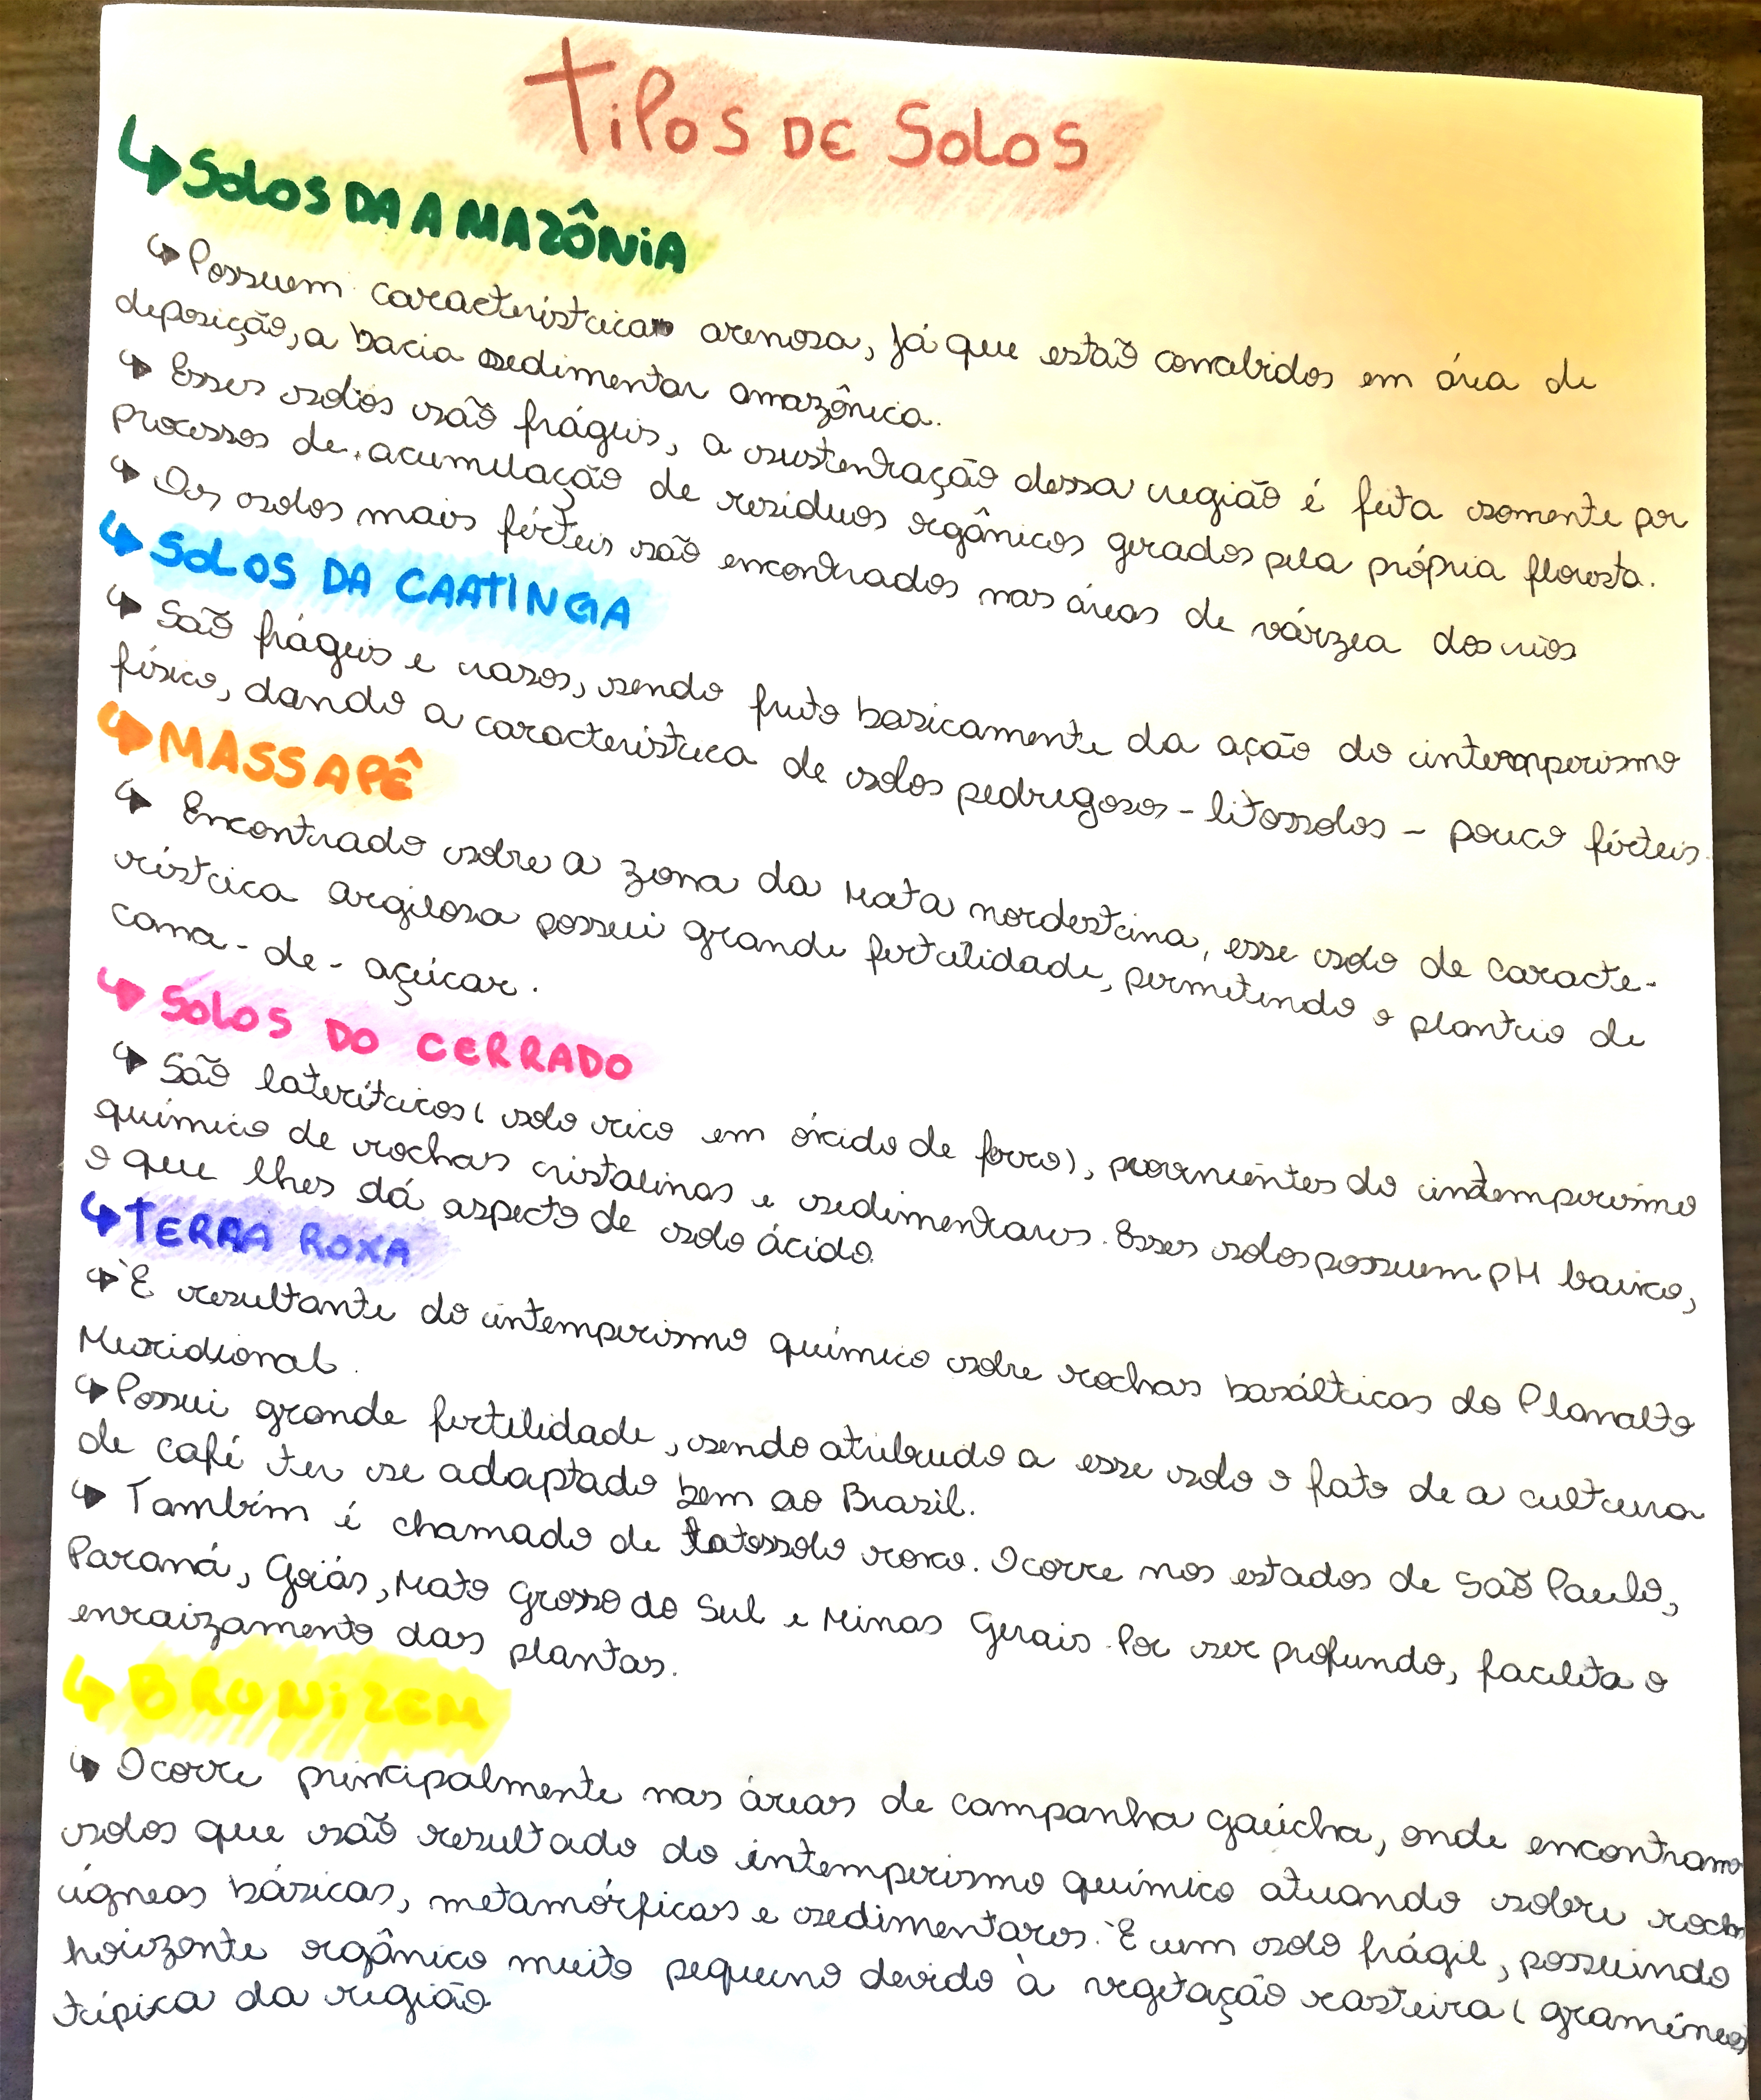 Tipos de Solos
↳ Solos da Amazônia
↳ Possuem característica arenosa, já que estão concebidos em área de
deposição, a bacia sedimentar amazônica.
↳ Esses solos são frágeis, a sustentação dessa região é feita somente por
processos de acumulação de resíduos orgânicos gerados pela própria floresta.
↳ Os solos mais férteis são encontrados nas áreas de várzea dos rios
↳ Solos da Caatinga
↳ São frágeis e rasos, sendo fruto basicamente da ação do intemperismo
físico, dando a característica de solos pedregosos - litossolos - pouco férteis.
↳ Massapê
↳ Encontrado sobre a zona da Mata nordestina, esse solo de caracte-
rística argilosa possui grande fertilidade, permitindo o plantio de
cana-de-açúcar.
↳ Solos do Cerrado
↳ São lateríticos (solo rico em óxido de ferro), provenientes do intemperismo
químico de rochas cristalinas e sedimentares. Esses solos possuem pH baixo,
o que lhes dá aspecto de solo ácido.
↳ Terra Roxa
↳ È resultante do intemperismo químico sobre rochas basálticas do Planalto
Meridional.
↳ Possui grande fertilidade, sendo atribuído a esse solo o fato de a cultura
de café ter se adaptado bem ao Brasil.
↳ Também é chamado de latossolo roxo. Ocorre nos estados de São Paulo,
Paraná, Goiás, Mato Grosso do Sul e Minas Gerais. Por ser profundo, facilita o
enraizamento das plantas.
↳ Brunizem
↳ Ocorre principalmente nas áreas de campanha gaúcha, onde encontramo
solos que são resultado do intemperismo químico atuando sobre
ígneas básicas, metamórficas e sedimentares. È um solo frágil, possuindo
horizonte orgânico muito pequeno devido à vegetação rasteira (gramíneas)
típica da região